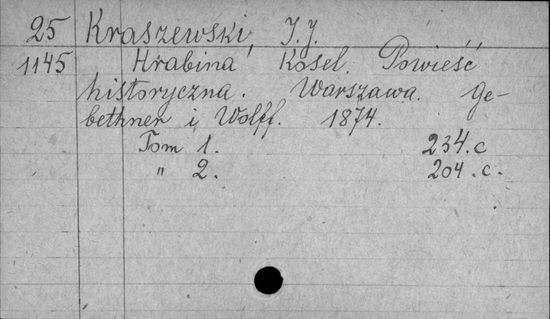 25 Kraszewski, J. J.
1145 Hrabina Kosel. Powieść
historyczna. Warszawa. Ge-
bethner i Wolff. 1874.
Tom 1. 234.c
" 2. 204.c.